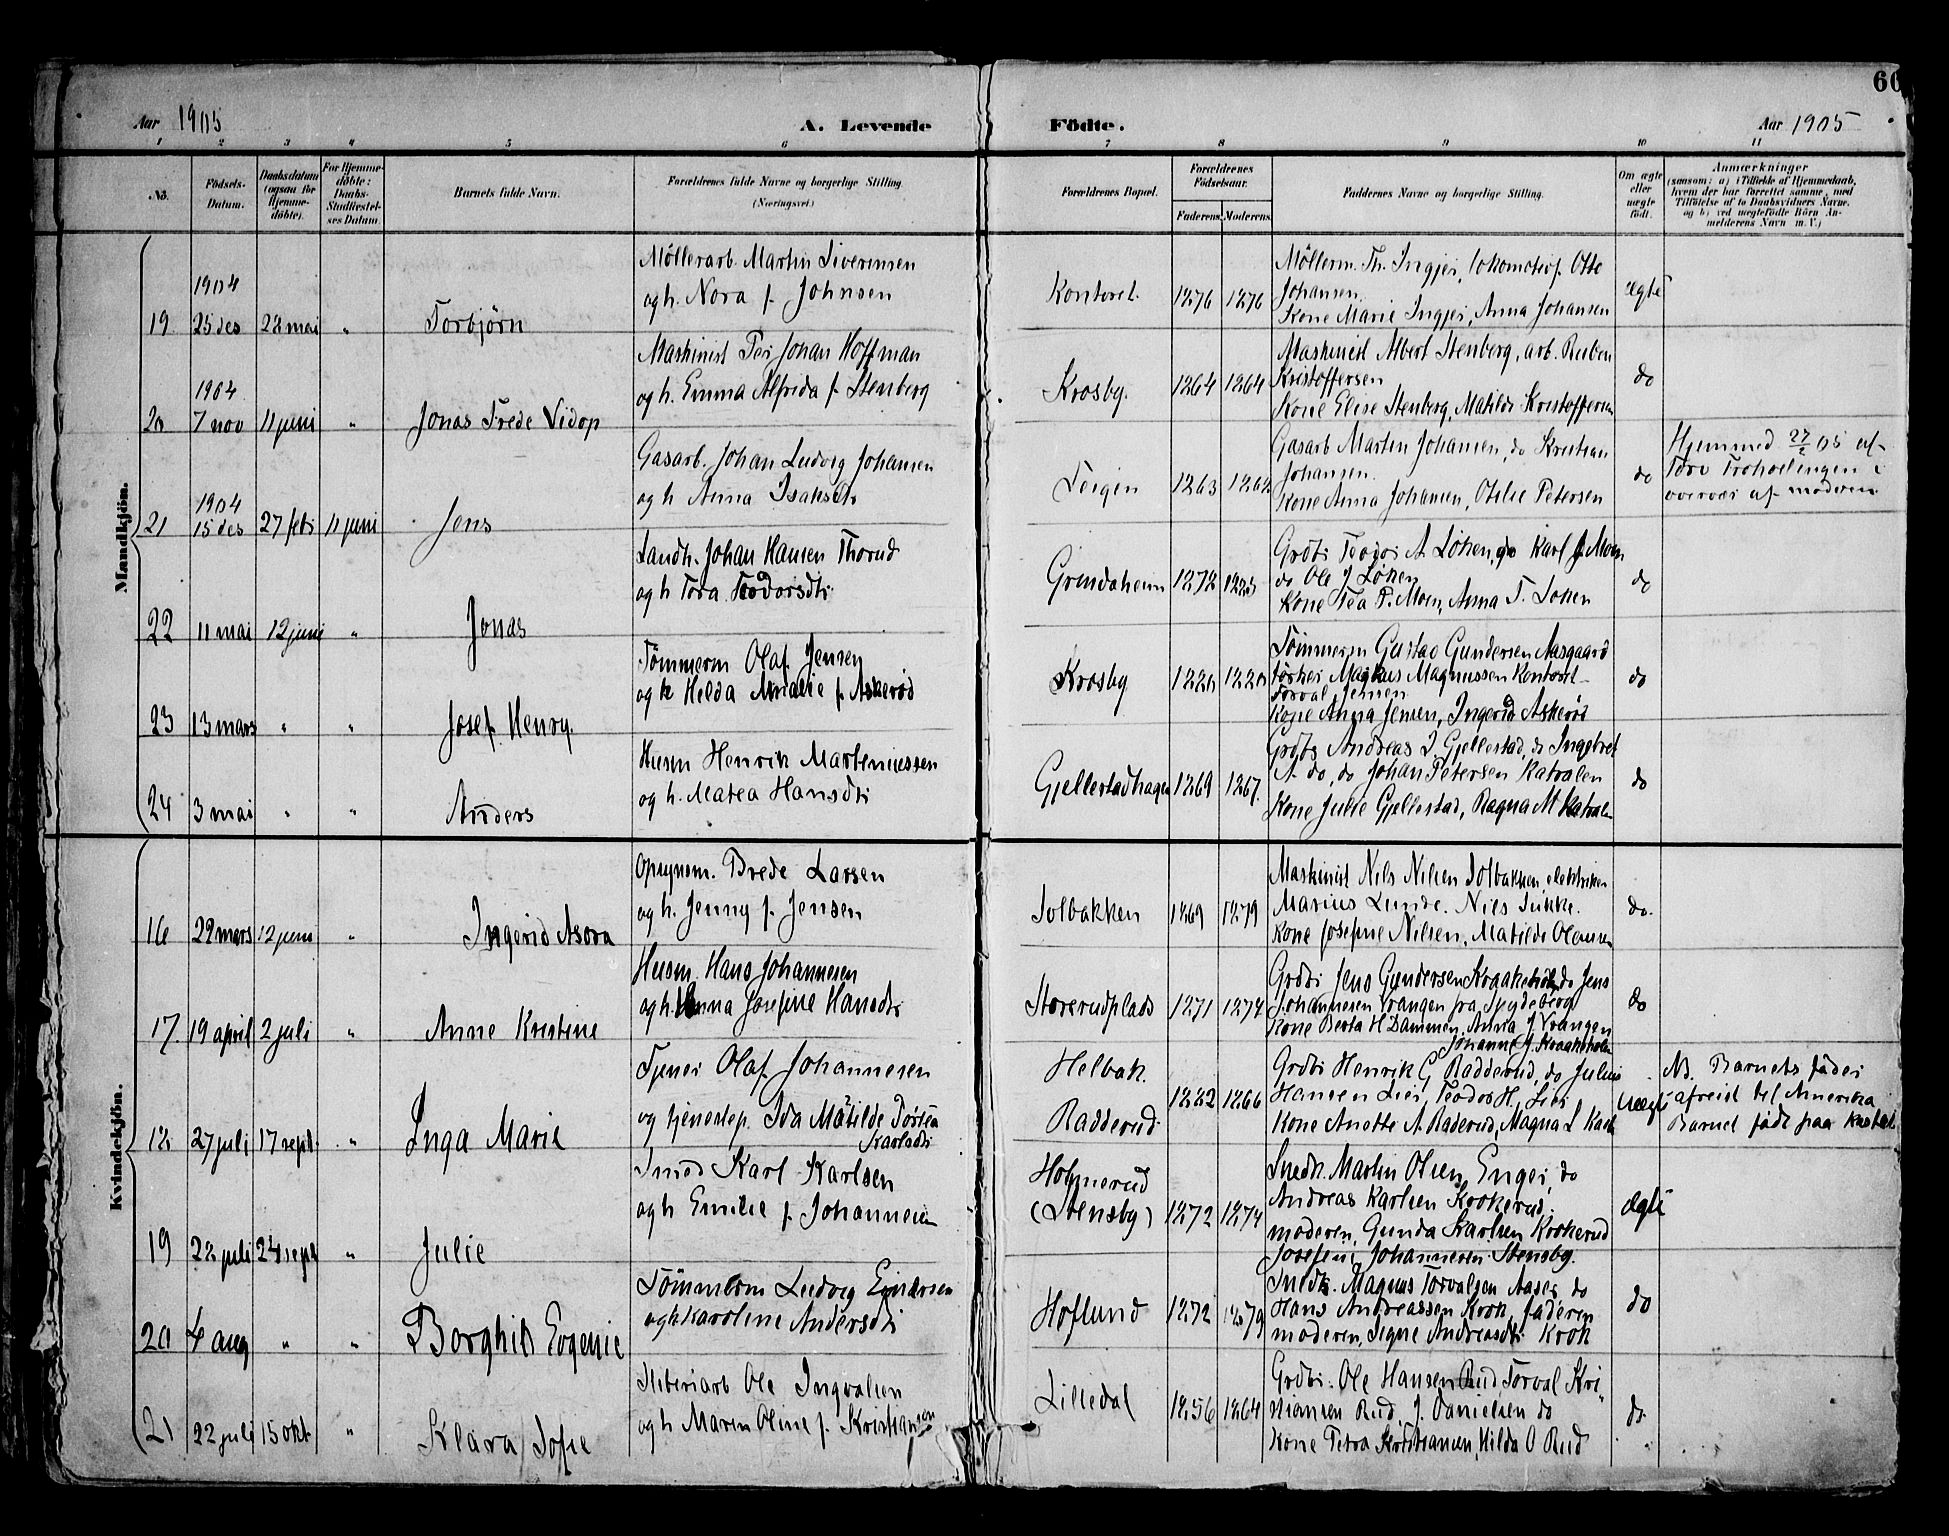 60
Aar 1905
A. Levende Födte.
Aar 1905
1 2 3 4 5 6 7 8 9 10 11
No.
Födsels-Datum.
Daabsdatum (ogsaa for Hjemme-döbte).
For Hjemme-döbte: Daabs-Stadfæstel-ses Datum.
Barnets fulde Navn.
Forældrenes fulde Navne og borgerlige Stilling (Næringsvei.)
Forældrenes Bopæl.
Forældrenes Födselsaar.
Faderens. Moderens.
Faddernes Navne og borgerlige Stilling.
Om ægte eller uægte født.
Anmærkninger
(saasom: a) i Tilfælde af Hjemmedaab,
hvem der har forrettet samme, med
Tilföielse af to Daabsvidners Navne,
og b) ved uegtefödte Börn An-
melderens Navn m.V.)
Mandkjön.
19 1904 25 des 28 mai " Torbjörn
Möllerarb. Martin Siverensen
og h. Nora f. Johnsen
Kontoret. 1876 1876
Möllerm. Th. Ingjer, lokomotivf. Otto
Johansen.
Kone Marie Ingjer, Anna Johansen
ægte
20 1904. 7 nov 11 juni " Jonas Frede Vidop
Maskinist Per Johan Hoffman
og h. Emma Alfrida f. Stenberg
Krosby. 1864 1864
Maskinist Albert Stenberg, arb. Ruben
Kristoffersen
Kone Elise Stenberg, Matilde Kristoffersen
do
21 1904 15 des 27 feb 11 juni Jens
Gasarb. Johan Ludvig Johansen
og h Anna Isaksdtr
Teigen 1863 1862
Gasarb Martin Johansen, do Kristian
Johansen.
Kone Anna Johansen, Otilie Petersen
do
Hjemmed 27/2 05 af
Tora Froholtingen i
overvær af moderen
22 11 mai 12 juni " Jonas
Landh. Johan Hansen Thorud
og h Tora Teodorsdtr.
Grindaheim 1872
Grdbr Teodor A. Löken, do Karl J. Moen
do Ole J Löken
Kone Tea P. Moen, Anna T. Loken
do
23 13 mars " " Josef Henry.
Tömmerm Olaf Jensen
og h Helda Amalie f. Askeröd
Krosby
Tömmerm Gustav Gundersen Aasgaard
Markus Magnussen Kontoret
Torval Jensen
Kone Anna Jensen, Ingerid Askeröd
do
24 3 mai " " Anders
Husm Henrik Marteniussen
og h. Matea Hansdtr
Gjellestadhagen 1869 1867.
Grdbr Andreas I. Gjellestad, do Ingebret
A. do, do Johan Petersen Katralen
Kone Julie Gjellestad, Ragna M Katralen
do
Kvindekjön.
16 29 mars 12 juni " Ingerid Asora
Opsynsm. Brede Larsen
og h. Jenny f. Jensen
Solbakken 1869 1879
Maskinist Nils Nilsen Solbakken, elektriker
Marius Lunde. Nils Sukke.
Kone Josefine Nilsen, Matilde Olausen
do.
17. 19 april 2 juli " Anne Kristine
Husm. Hans Johannesen
og h. Anna Josefine Hansdtr
Storerudplads 1871 1874
Grdbr Jens Gundersen Kraakeholen do Jens
Johannesen Vrangen fra Spydeberg
Kone Berta H Dammen, Anna J. Vrangen
Johanne J. Kraakeholen
do
18 27 juli 17 sept. " Inga Marie
Tjener Olaf Johannesen
og tjenestep. Ida Matilde
Karlsdtr
Helbak.
Radderud. 1882 1866
Grdbr Henrik G Radderud, do Julius
Hansen Lier, Teodor H. Lier
Kone Anette A. Raderud, Magna L Kaas
uægte
Nb. Barnets fader
afreist til Amerika
Barnet födt paa
19 28 juli 24 sept " Julie
Smed Karl Karlsen
og h Emilie f. Johannesen
Holmerud
(Stensby) 1872 1874
Snedk. Martin Olsen Enger, do
Andreas Karlsen Krokerud
moderen, Gunda Karlsen Krokerud
Josefine Johannesen Stensby.
ægte
20 4 aug " " Borghild Eogenie
Tömmerm Ludvig Einarsen
og h Karoline Andersdtr
Hoflund 1872 1879
Snedk. Magnus Torvalsen Aaser do
Hans Andreassen Krok, faderen
moderen, Signe Andreasdtr Krok
do
21 22 juli 15 okt. " Klara Sofie
Sliberiarb Ole Ingvalsen
og h Maren Oline f. Kristiansen
Lilledal 1856 1864
Grdbr. Ole Hansen Rud, Torval Kri-
stiansen Rud, J. Danielsen do
Kone Petra Kristiansen, Hilda O Rud
do.